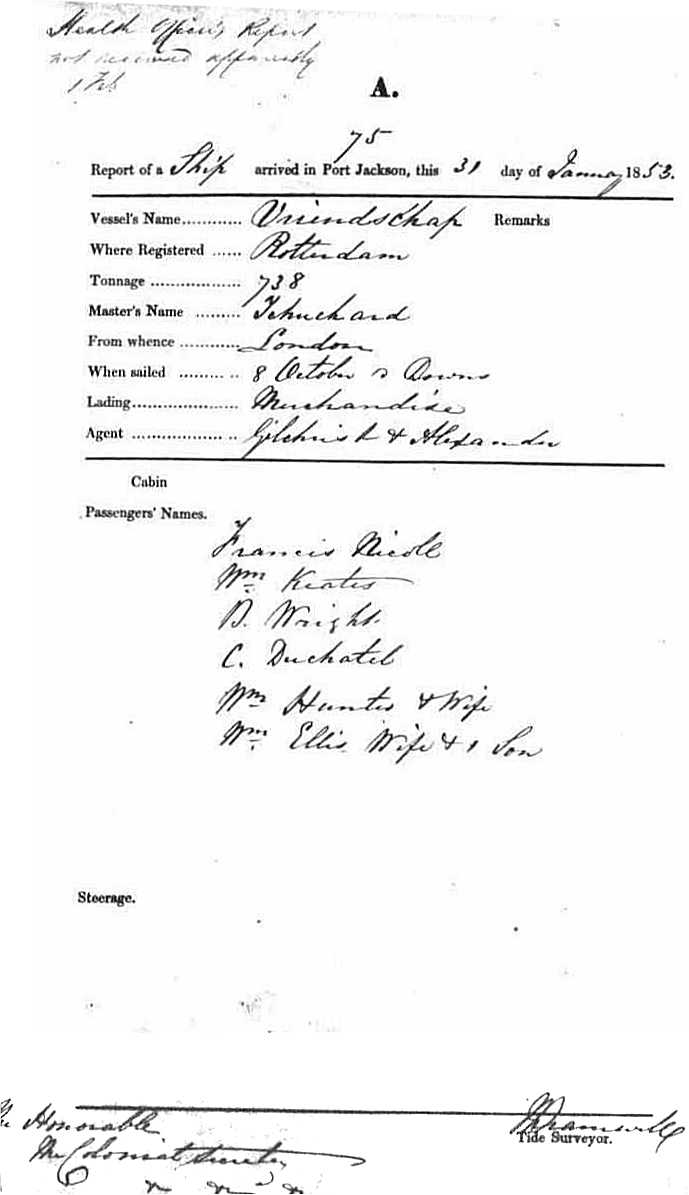 Health Officer's Report
not received apparently
1 Feb
A.
75
Report of a Ship arrived in Port Jackson, this 31 day of January 1853.
Vessel's Name............ Vriendschap Remarks
Where Registered ...... Rotterdam
Tonnage .................. 738
Master's Name ......... Schuchard
From whence ............ London
When sailed ......... .. 8 October Downs
Lading..................... Merchandise
Agent .................. .. Gilchrist & Alexander
Cabin
Passengers' Names.
Francis Nicoll
Wm Keates
B. Wright
C. Duchatel
Wm Hunter & Wife
Wm Ellis Wife & 1 Son
Steerage.
The Honorable
The Colonial Secretary
Tide Surveyor.